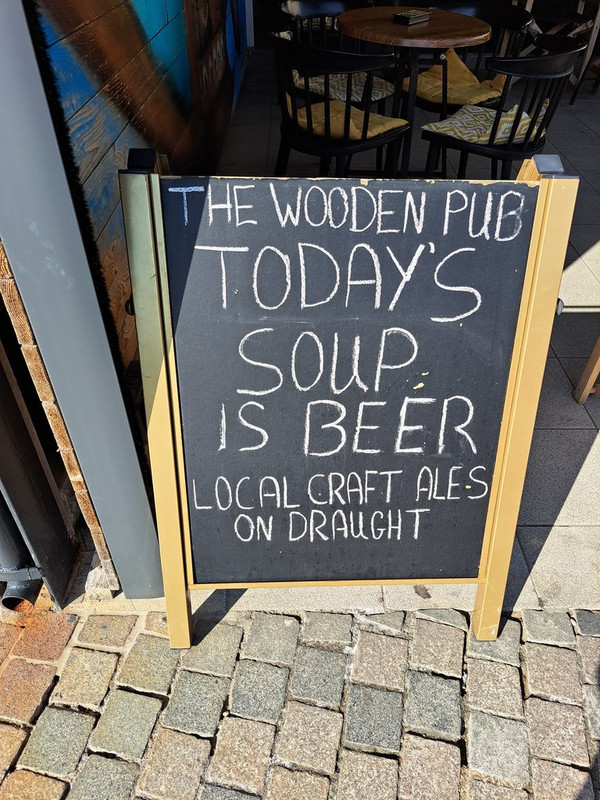 THE WOODEN PUB
TODAY'S
SOUP
IS BEER
LOCAL CRAFT ALES
ON DRAUGHT